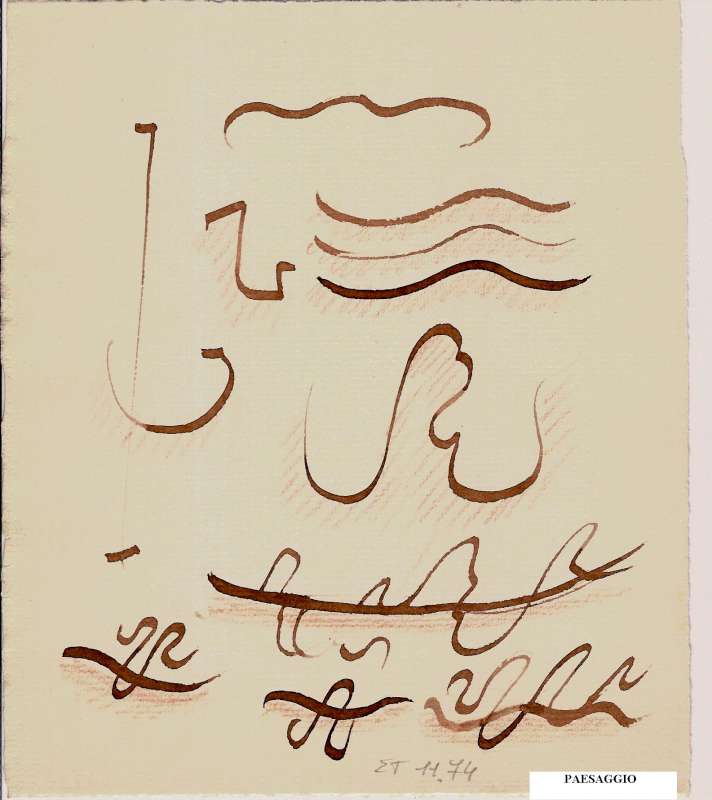 ET 11.74
PAESAGGIO